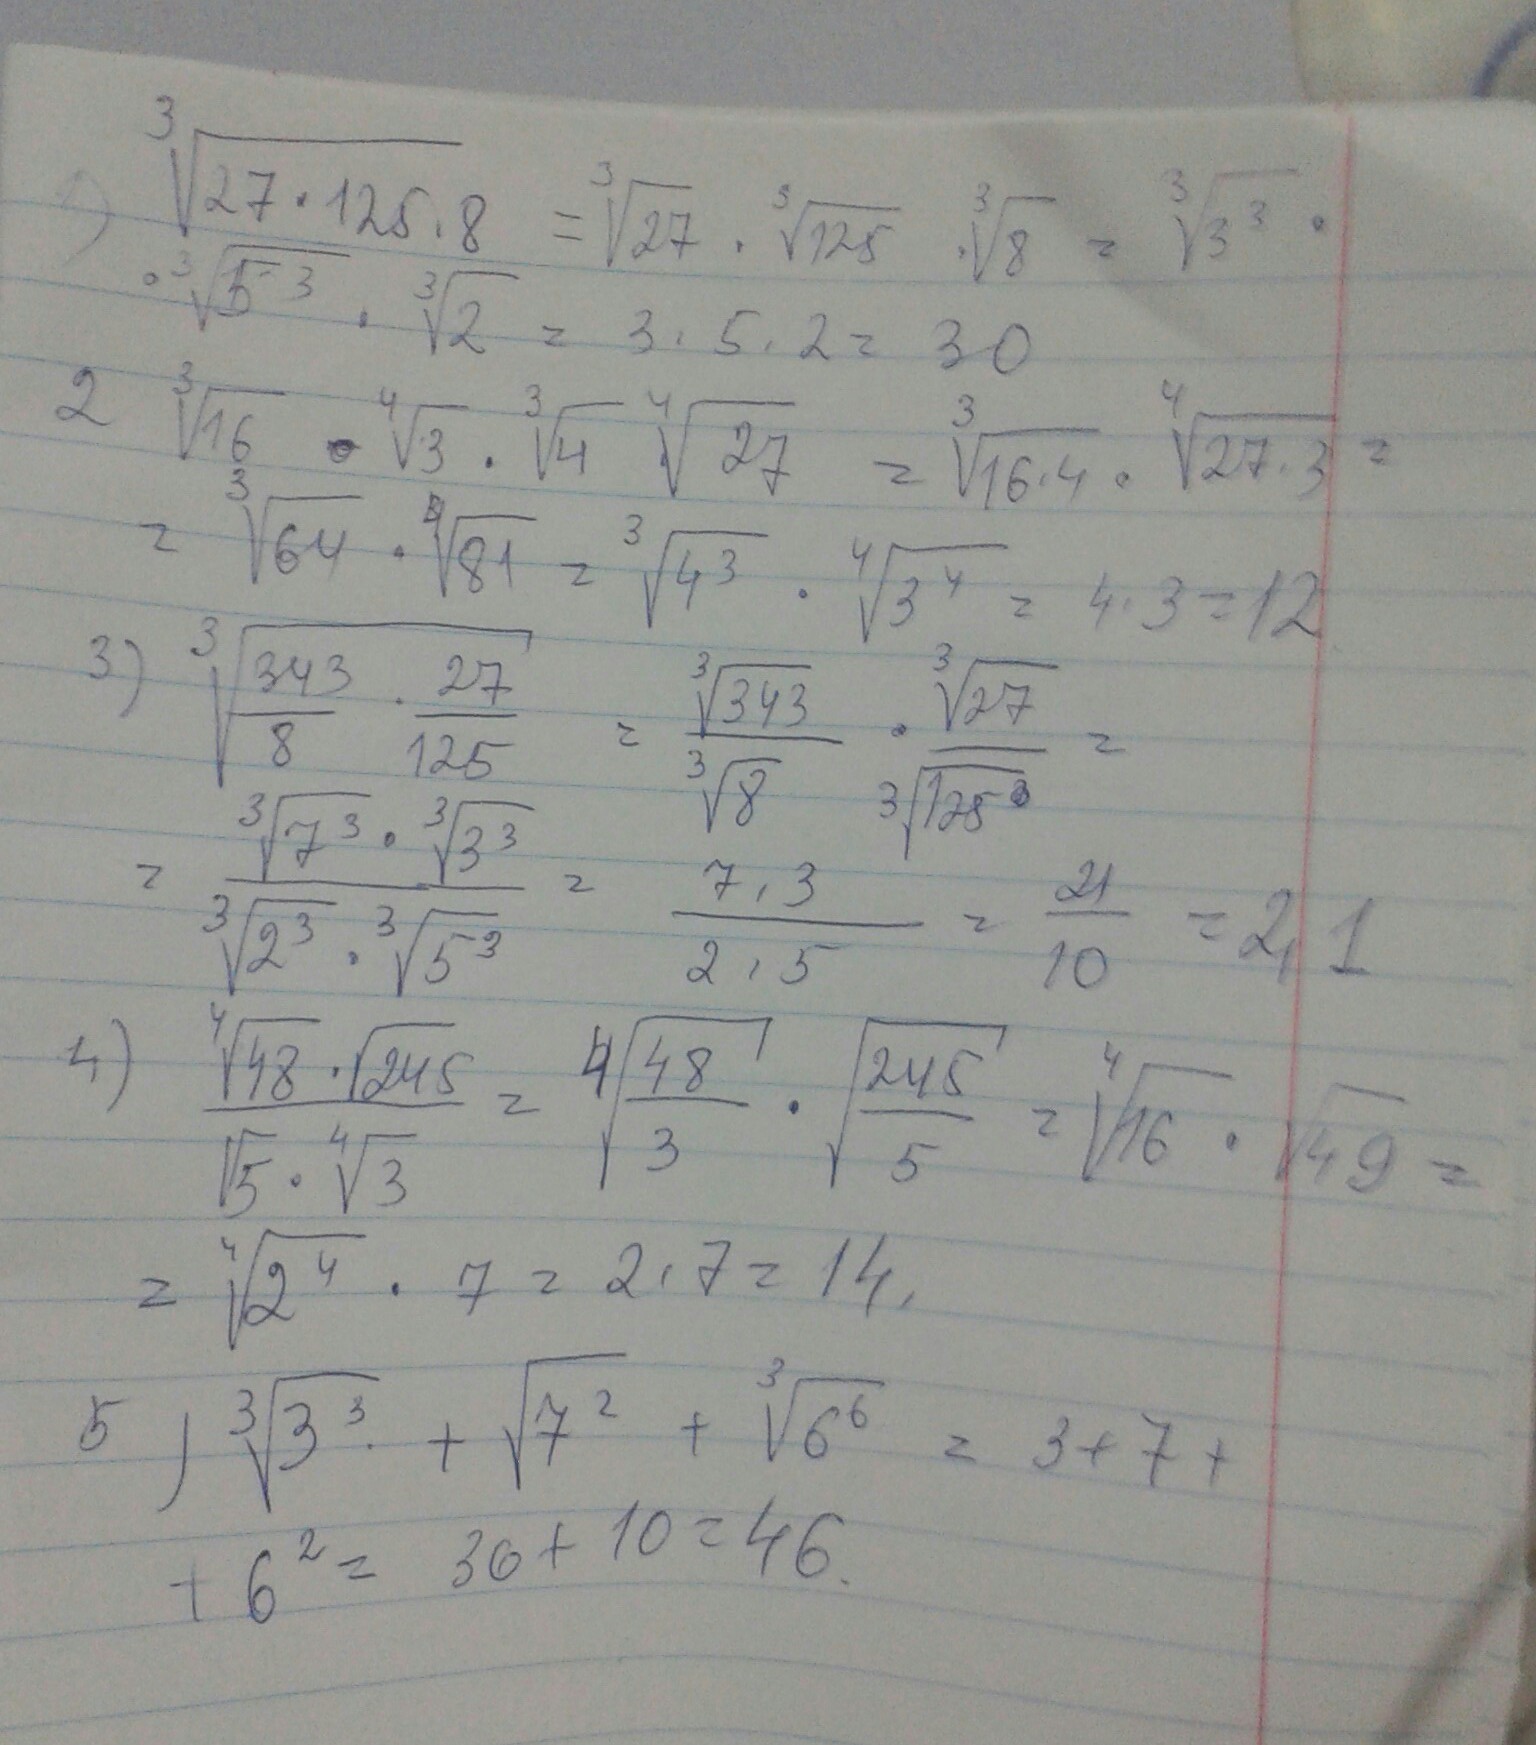 1) ∛(27·125·8) = ∛27 · ∛125 · ∛8 = ∛3³ ·
· ∛5³ · ∛2 = 3·5·2 = 30
2 ∛16 · ∜3 · ∛4 · ∜27 = ∛(16·4) · ∜(27·3) =
= ∛64 · ∜81 = ∛4³ · ∜3⁴ = 4·3 = 12
3) ∛(343/8 · 27/125) = ∛343/∛8 · ∛27/∛125³ =
= (∛7³ · ∛3³)/(∛2³ · ∛5³) = (7·3)/(2·5) = 21/10 = 2,1
4) (∜48 · √245)/(√5 · ∜3) = ∜(48/3) · √(245/5) = ∜16 · √49 =
= ∜2⁴ · 7 = 2·7 = 14.
5) ∛3³ + √7² + ∛6⁶ = 3+7+
+ 6² = 36+10 = 46.